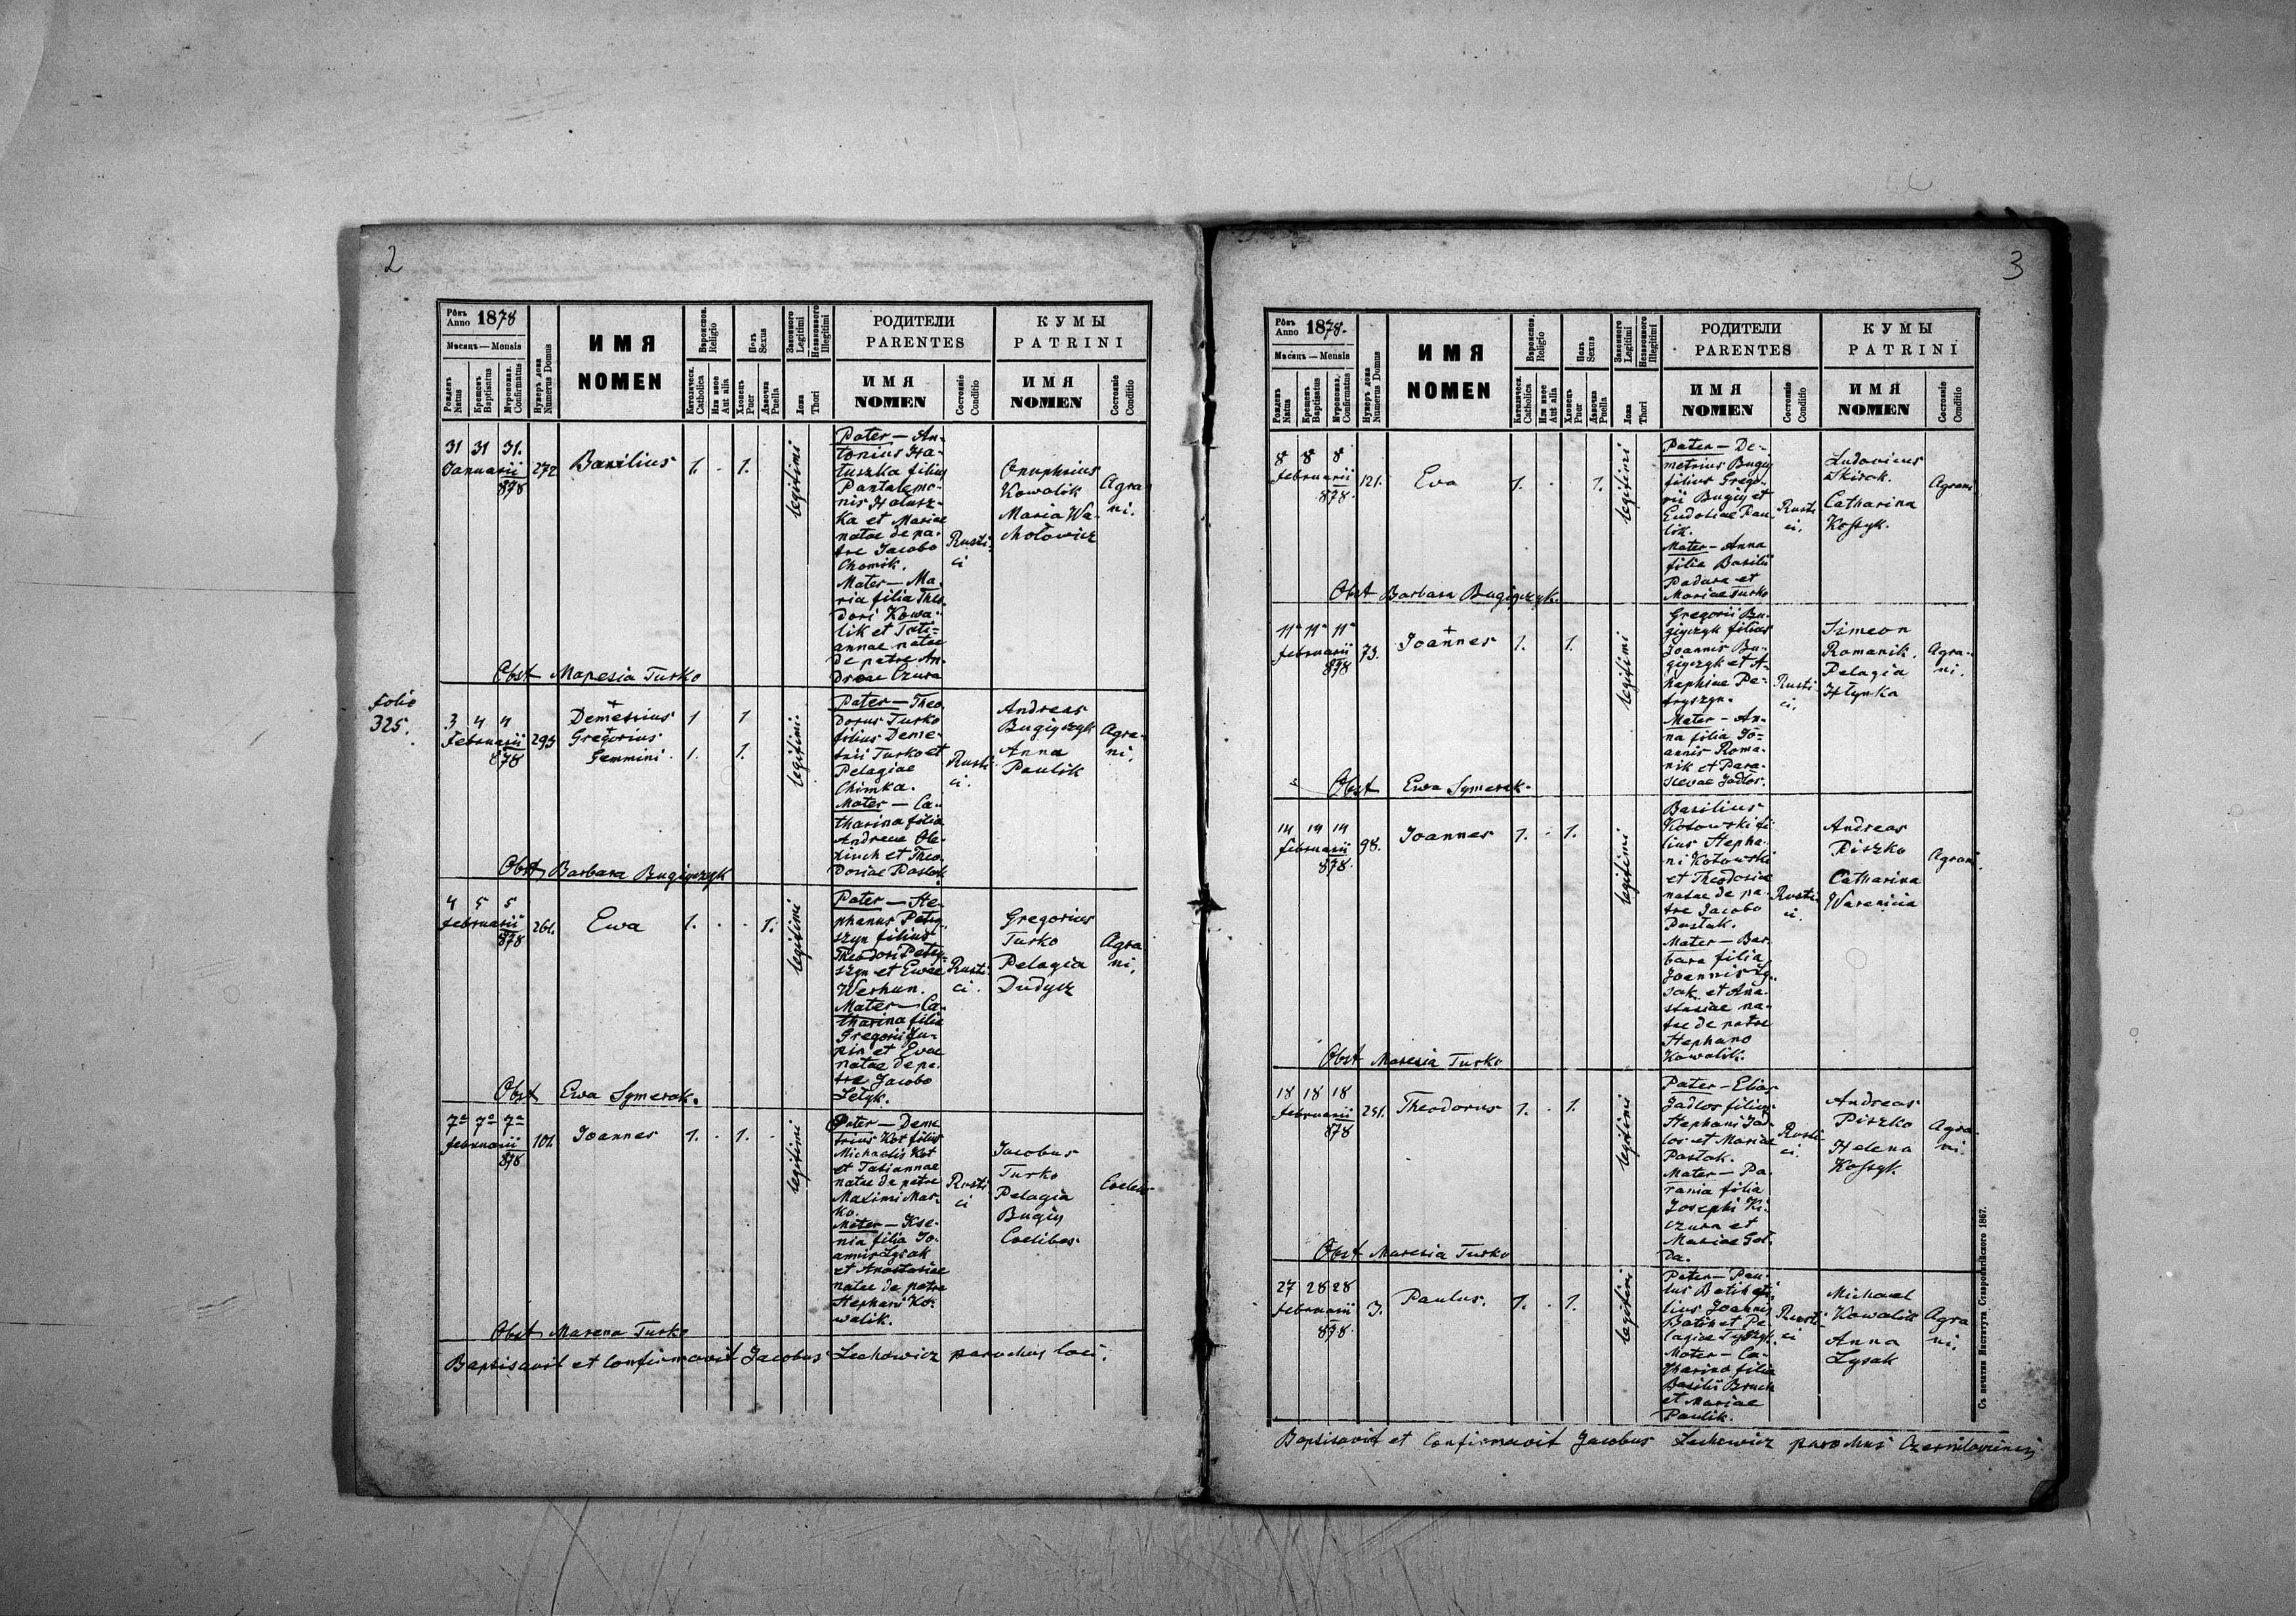 2
Рôкъ Anno 1878
Мѣсяцъ — Mensis
Рожденъ Natus
Крещенъ Baptisatus
Мυропомаз. Confirmatus
Нумеръ дома Numerus Domus
ИМЯ
NOMEN
Вѣроиспов. Religio
Католическ. Catholica
Или иное Aut alia
Полъ Sexus
Хлопецъ Puer
Дѣвочка Puella
Законного Legitimi
Незаконного Illegitimi
Ложа Thori
РОДИТЕЛИ
PARENTES
ИМЯ
NOMEN
Состояніе Conditio
КУМЫ
PATRINI
ИМЯ
NOMEN
Состояніе Conditio
31 31 31.
Januarii
878
272
Basilius
1. · 1.
legitimi
Pater — An-
tonius Ha-
tuszka filius
Pantalemo-
nis Halusz-
ka et Mariae
natae de pa-
tre Jacobo
Chomik.
Mater — Ma-
ria filia Theo-
dori Kowa-
lik et Tati-
annae natae
de patre An-
dreae Czura
Rusti-
ci
Onuphrius
Kowalik
Maria Wa-
chołowicz
Agra-
ni.
Obst Maresia Turko
folio
325.
3 4 4
Februarii
878
295
Demetrius
Gregorius
Gemmini
1 1
1. 1.
legitimi
Pater — Theo-
dorus Turko
filius Deme-
trii Turko et
Pelagiae
Chimka.
Mater — Ca-
tharina filia
Andreae Ole-
xiuch et Theo-
dosiae Pastak
Rusti-
ci.
Andreas
Bugiyczyk
Anna
Paulik
Agra-
ni.
Obst Barbara Bugiyczyk
4 5 5
Februarii
878
261.
Ewa
1. · · 1.
legitimi
Pater — Ste-
phanus Petry-
szyn filius
Theodori Petry-
szyn et Ewae
Werhun.
Mater — Ca-
tharina filia
Gregorii
et Evae
natae de pa-
tre Jacobo
Rusti-
ci.
Gregorius
Turko
Pelagia
Dudycz
Agra-
ni.
Obst Ewa Symerak.
7a 7a 7a
februarii
878
101.
Joannes
1. · 1. ·
legitimi
Pater — Deme-
trius Kot filius
Michaelis Kot
et Tatiannae
natae de patre
Maximi Mar-
ko.
Mater — Kse-
nia filia Jo-
annis Lysak
et Anastasiae
natae de patre
Stephani Ko-
walik.
Rusti-
ci
Jacobus
Turko
Pelagia
Bugiy
Coelibes
Obst Marena Turko
Baptisavit et Confirmavit Jacobus Lechowicz parochus loci.
3
Рôкъ Anno 1878.
Мѣсяцъ — Mensis
Рожденъ Natus
Крещенъ Baptisatus
Мυропомаз. Confirmatus
Нумеръ дома Numerus Domus
ИМЯ
NOMEN
Вѣроиспов. Religio
Католическ. Catholica
Или иное Aut alia
Полъ Sexus
Хлопецъ Puer
Дѣвочка Puella
Законного Legitimi
Незаконного Illegitimi
Ложа Thori
РОДИТЕЛИ
PARENTES
ИМЯ
NOMEN
Состояніе Conditio
КУМЫ
PATRINI
ИМЯ
NOMEN
Состояніе Conditio
8 8 8
februarii
878.
121.
Eva
1. · 1.
legitimi
Pater — De-
metrius Bugiy
filius Grego-
rii Bugiy et
Eudosiae Pau-
lik.
Mater — Anna
filia Basilii
Padura et
Mariae Turko
Rusti-
ci.
Ludovicus
Skirok.
Catharina
Kossyk.
Agrani
Obst Barbara Bugiyczyk.
11a 11a 11a
februarii
878
73.
Joannes
1. 1.
legitimi
Gregorii Bu-
giyczyk filius
Joannis Bu-
giyczyk et A-
naphiae Pe-
tryszyn.
Mater — An-
na filia Jo-
annis Roma-
nik et Para-
scevae Jadlos.
Rusti-
ci.
Simeon
Romanik.
Pelagia
Hłynka
Agra-
ni.
Obst Ewa Symerak.
14 14 14
februarii
878.
98.
Joannes
1. · 1.
legitimi
Basilius
Kotowski fi-
lius Stepha-
ni Kotowski
et Theodosiae
natae de pa-
tre Jacobo
Pastak.
Mater — Bar-
bara filia
Joannis Ly-
sak et Ana-
stasiae na-
tae de patre
Stephano
Kowalik.
Rusti-
ci.
Andreas
Piszko
Catharina
Warenicia
Agrani
Obst Maresia Turko
18 18 18
februarii
878
251.
Theodorus
1. · 1.
legitimi
Pater — Elias
Jadlos filius
Stephani Jad-
los et Mariae
Pastak.
Mater — Pa-
rania filia
Josephi Ki-
czura et
Mariae Goł-
da.
Rusti-
ci.
Andreas
Piszko
Helena
Kossyk.
Agra-
ni.
Obst Maresia Turko
27 28 28
februarii
878.
3.
Paulus.
1. · 1.
legitimi
Pater — Pau-
lus Batih fi-
lius Joannis
Batih et Pe-
lagiae
Mater — Ca-
tharina filia
Basilii Bruch
et Mariae
Paulik.
Rusti-
ci
Michael
Kowalik
Anna
Lysak
Agra-
ni.
Baptisavit et Confirmavit Jacobus Lechowicz parochus
Съ печатни Института Ставропигійского 1867.